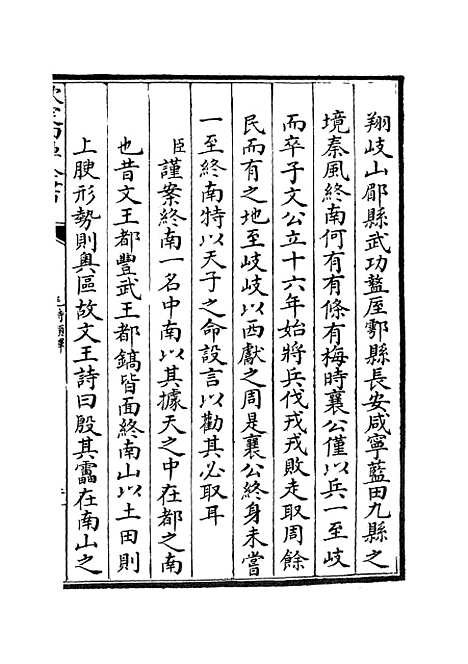 翔岐山郿縣武功盩厔鄠縣長安咸寧藍田九縣之
境秦風終南何有有條有梅時襄公僅以兵一至岐
而卒子文公立十六年始將兵伐戎戎敗走取周餘
民而有之地至岐岐以西獻之周是襄公終身未嘗
一至終南特以天子之命設言以勸其必取耳
臣謹案終南一名中南以其據天之中在都之南
也昔文王都豐武王都鎬皆面終南山以土田則
上腴形勢則奧區故文王詩曰殷其靁在南山之